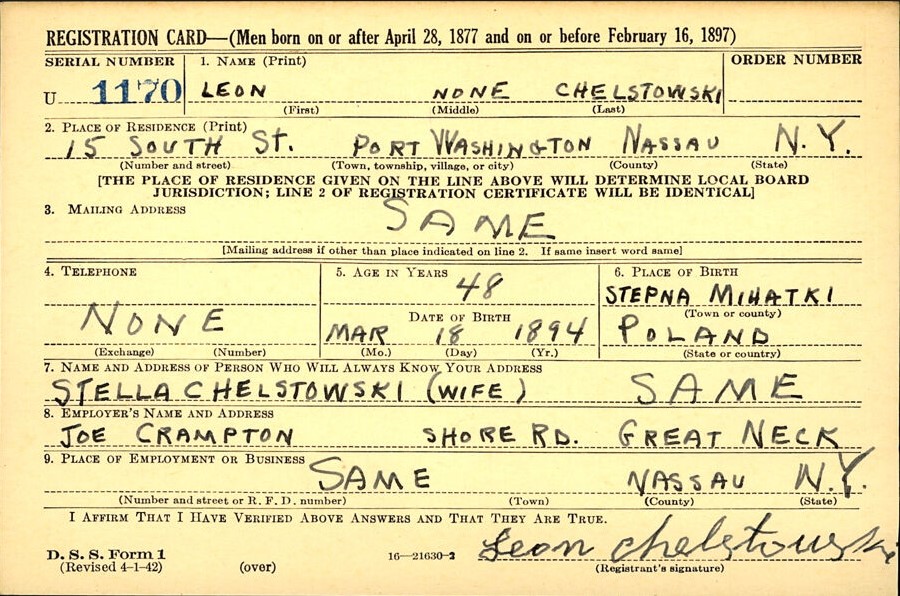 REGISTRATION CARD—(Men born on or after April 28, 1877 and on or before February 16, 1897)
SERIAL NUMBER 1. NAME (Print) ORDER NUMBER
U 1170 LEON NONE CHELSTOWSKI
(First) (Middle) (Last)
2. PLACE OF RESIDENCE (Print)
15 SOUTH ST. PORT WASHINGTON NASSAU N.Y.
(Number and street) (Town, township, village, or city) (County) (State)
[THE PLACE OF RESIDENCE GIVEN ON THE LINE ABOVE WILL DETERMINE LOCAL BOARD
JURISDICTION; LINE 2 OF REGISTRATION CERTIFICATE WILL BE IDENTICAL]
3. MAILING ADDRESS
SAME
[Mailing address if other than place indicated on line 2. If same insert word same]
4. TELEPHONE 5. AGE IN YEARS 6. PLACE OF BIRTH
48 STEPNA MIHATKI
(Town or county)
DATE OF BIRTH
NONE MAR 18 1894 POLAND
(Exchange) (Number) (Mo.) (Day) (Yr.) (State or country)
7. NAME AND ADDRESS OF PERSON WHO WILL ALWAYS KNOW YOUR ADDRESS
STELLA CHELSTOWSKI (WIFE) SAME
8. EMPLOYER'S NAME AND ADDRESS
JOE CRAMPTON SHORE RD. GREAT NECK
9. PLACE OF EMPLOYMENT OR BUSINESS
SAME NASSAU N.Y.
(Number and street or R. F. D. number) (Town) (County) (State)
I AFFIRM THAT I HAVE VERIFIED ABOVE ANSWERS AND THAT THEY ARE TRUE.
Leon Chelstowski
D. S. S. Form 1 16—21630-2
(Revised 4-1-42) (over) (Registrant's signature)